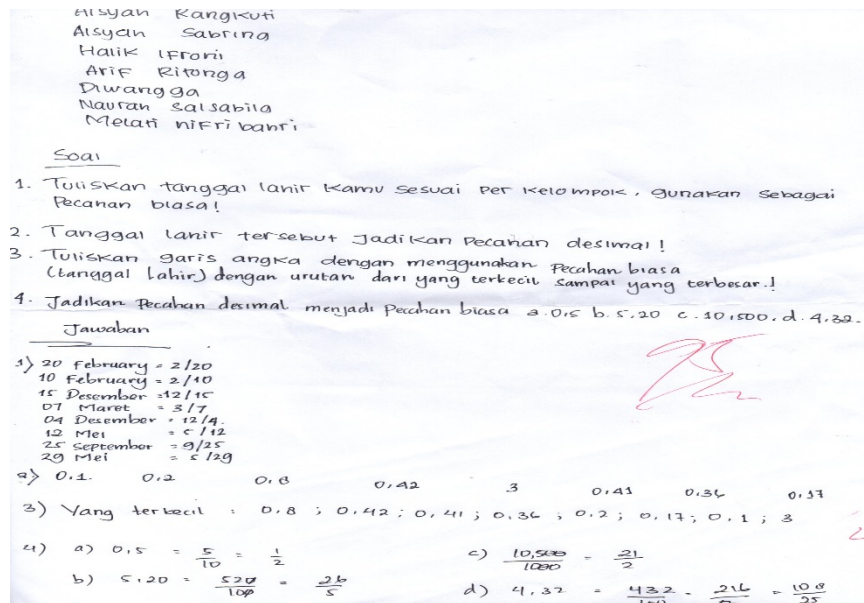 Aisyah Rangkuti
Aisyah Sabrina
Halik
Arif Ritonga
Diwangga
Nauran Salsabila
Melati
Soal
1. Tuliskan tanggal lahir kamu sesuai per kelompok, gunakan sebagai
Pecahan biasa!
2. Tanggal lahir tersebut jadikan pecahan desimal!
3. Tuliskan garis angka dengan menggunakan Pecahan biasa
(tanggal Lahir) dengan urutan dari yang terkecil sampai yang terbesar.!
4. Jadikan Pecahan desimal menjadi Pecahan biasa a. 0,5 b. 5.20 c. 10,500. d. 4,32.
Jawaban
1) 20 February = 2/20
10 February = 2/10
15 Desember = 12/15
07 Maret = 3/7
04 Desember = 12/4.
12 Mei = 5/12
25 September = 9/25
29 Mei = 5/29
2) 0,1. 0,2 0,8 0,42 3 0,41 0,36 0,17
3) Yang terkecil : 0.8 ; 0,42 ; 0,41 ; 0,36 ; 0.2 ; 0,17 ; 0,1 ; 3
4) a) 0,5 = 5/10 = 1/2 c) 10,500/1000 = 21/2
b) 5.20 = 520/100 = 26/5 d) 4,32 = 432/100 = 216 = 108/25
95